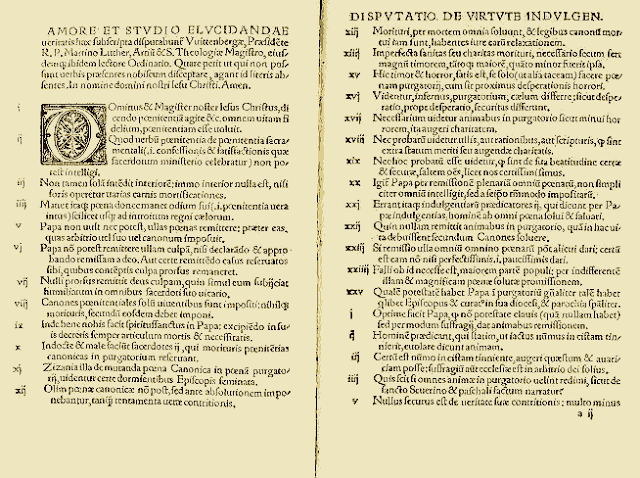 AMORE ET STVDIO ELVCIDANDAE
ueritatis hæc subscripta disputabunť Vuittenbergæ, Præsidēte
R. P. Martino Luther, Artiū & S. Theologiæ Magistro, eius-
demq́ ibidem lectore Ordinario. Quare petit ut qui non pos-
sunt uerbis præsentes nobiscum disceptare, agant id literis ab-
sentes. In nomine domini nostri Iesu Christi. Amen.
i Ominus & Magister noster Iesus Christus, di
cendo pœnitentiā agite &c. omnem uitam fi
delium, pœnitentiam esse uoluit.
ij Quod uerbū pœnitentia de pœnitentia sacra-
mentali, i. confessionis & satisfactionis quæ
sacerdotum ministerio celebratur) non po-
test intelligi.
iij Non tamen solā intēdit interiorē; immo interior nulla est, nisi
foris operetur uarias carnis mortificationes.
iiij Manet itaq; pœna donec manet odium sui, i. pœnitentia uera
intus) scilicet usq; ad introitum regni cælorum.
v Papa non uult nec potest, ullas pœnas remittere; præter eas,
quas arbitrio uel suo uel canonum imposuit.
vj Papa nō potest remittere ullam culpā, nisi declarādo & appro-
bando remissam a deo. Aut certe remittēdo casus reseruatos
sibi, quibus cōtēptis culpa prorsus remaneret.
vij Nulli prorsus remittit deus culpam, quin simul eum subijciat
humiliatum in omnibus sacerdoti suo uicario.
viij Canones pœnitentiales solū uiuentibus sunt impositi; nihilq;
morituris, secundū eosdem debet imponi.
ix Inde bene nobis facit spiritussanctus in Papa; excipiēdo in su-
is decretis semper articulum mortis & necessitatis.
x Indocte & male faciūt sacerdotes ij, qui morituris pœnitētias
canonicas in purgatorium reseruant.
xj Zizania illa de mutanda pœna Canonica in pœnā purgato-
rij, uidentur certe dormientibus Episcopis seminata.
xij Olim pœnæ canonicæ nō post, sed ante absolutionem impo-
nebantur, tanq̄ tentamenta ueræ contritionis.
DISPVTATIO DE VIRTVTE INDVLGEN.
xiij Morituri, per mortem omnia soluunt, & legibus canonū mor-
tui iam sunt, habentes iure earū relaxationem.
xiiij Imperfecta sanitas seu charitas morituri, necessario secum fert
magnū timorem, tātoq; maiorē, quāto minor fuerit ipsa.
xv Hic timor & horror, satis est, se solo (ut alia taceam) facere pœ-
nam purgatorij, cum sit proximus desperationis horrori.
xvj Videntur, infernus, purgatorium, cælum differre; sicut despe-
ratio, prope desperatio, securitas differunt.
xvij Necessarium uidetur animabus in purgatorio sicut minui hor-
rorem, ita augeri charitatem.
xviij Nec probatū uidetur ullis, aut rationibus, aut scripturis, q̄ sint
extra statum meriti seu augendæ charitatis.
xix Nec hoc probatū esse uidetur, q̄ sint de sua beatitudine certæ
& securæ, saltem oēs, licet nos certissimi simus.
xx Igit̃ Papa per remissionē plenariā omniū pœnarū, non simpli
citer omniū intelligit, sed a seipō mōmodo impositarū.
xxj Errant itaq; indulgentiarū prædicatores ij, qui dicunt per Pa-
pæ indulgentias, hominē ab omni pœna solui & saluari.
xxij Quin nullam remittit animabus in purgatorio, quā in hac ui-
ta debuissent secundum Canones soluere.
xxiij Si remissio ulla omniū omnino pœnarū pōt alicui dari; certū
est eam nō nisi perfectissimis, i. paucissimis dari.
xxiiij Falli ob id necesse est, maiorem partē populi; per indifferentē
illam & magnificam pœnæ solutæ promissionem.
xxv Qualē potestatē habet Papa ī purgatoriū gñaliter talē habet
quilibet Episcopus & curat' in sua diocesi, & parochia spāliter.
j Optime facit Papa, q̄ nō potestate clauis (quā nullam habet)
sed per modum suffragij, dat animabus remissionem.
ij Hominē prædicant, qui statim, ut iactus nūmus in cistam tin-
nierit, euolare dicunt animam.
iij Certū est nūmo in cistam tinniente, augeri quæstum & auari-
ciam posse; suffragiū aūt ecclesiæ est in arbitrio dei solius.
iiij Quis scit si omnes animæ in purgatorio uelint redimi, sicut de
sancto Seuerino & paschali factum narratur.
v Nullus securus est de ueritate suæ contritionis; multo minus
a ij